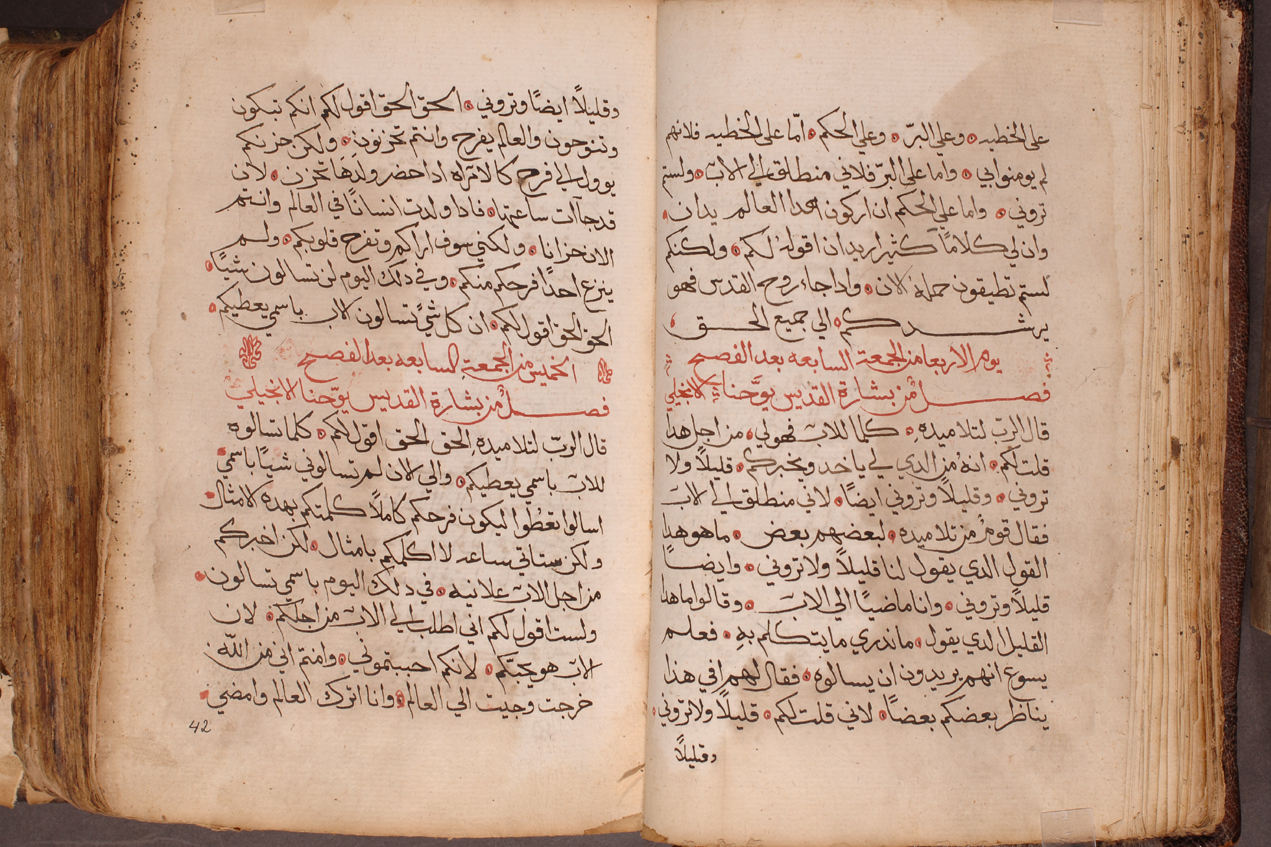 على الخطيه وعلي البرّ وعلي الحكم امّا على الخطيه فلانهم
لم يومنوا بي واما على البرّ فلاني منطلق الي الاب ولستم
تروني واما علي الحكم ان اركون هدا العالم يدان
وان لي كلامًا كثيرا اريد ان اقوله لكم ولكنكم
لستم تطيقون حمله الان وادا جاء روح القدس فهو
يرشدكم الي جميع الحق
يوم الاربعا من الجمعة السابعه بعد الفصح
فصل من بشارة القديس يوحنا الانجيلي
قال الرب لتلاميده كلما للاب فهو لي من اجل هدا
قلت لكم انه من الدي لي ياخد ويخبركم قليلاً ولا
تروني وقليلاً وتروني ايضًا لاني منطلق الي الاب
فقال قوم من تلاميده لبعضهم بعض ما هو هدا
القول الدي يقول لنا قليلاً ولا تروني وايضًا
قليلاً وتروني وانا ماضيًا الي الاب وقالوا ما هدا
القليل الدي يقول ما ندري ما يتكلم به فعلم
يسوع انهم يريدون ان يسالوه فقال لهم افي هذا
يناظر بعضكم بعضًا لاني قلت لكم قليلاً ولا تروني
وقليلاً
وقليلاً ايضًا وتروني الحق الحق اقول لكم انكم تبكون
وتنوحون والعالم يفرح وانتم تحزنون ولكن حزنكم
يوول الي فرح كالامراه ادا حضر ولدها تحزن لان
قد جاات ساعتها فادا ولدت انسانًا في العالم وانتم
الان حزانا ولكني سوف اراكم وتفرح قلوبكم ولم
ينزع احدًا فرحكم منكم وفي دلك اليوم لن تسالون شيًا
الحق الحق اقول لكم ان كل شي تسالون الاب باسمي يعطيكم
الخميس من الجمعة السابعه بعد الفصح
فصل من بشارة القديس يوحنا الانجيلي
قال الرب لتلاميده الحق الحق اقول لكم كلما تسالوه
للاب باسمي يعطيكم والي الان لم تسالوني شيًا باسمي
اسالوا تعطوا ليكون فرحكم كاملاً كلمتكم بهده الامثال
ولكن ستاتي ساعه لا اكلمكم بامثال لكن اخبركم
من اجل الاب علانيه في دلك اليوم باسمي تسالون
ولست اقول لكم اني اطلب الي الاب من اجلكم لان
الاب هو يحبكم لانكم احببتموني وامنتم اني من الله
خرجت وجيت الي العالم وانا اترك العالم وامضي
42